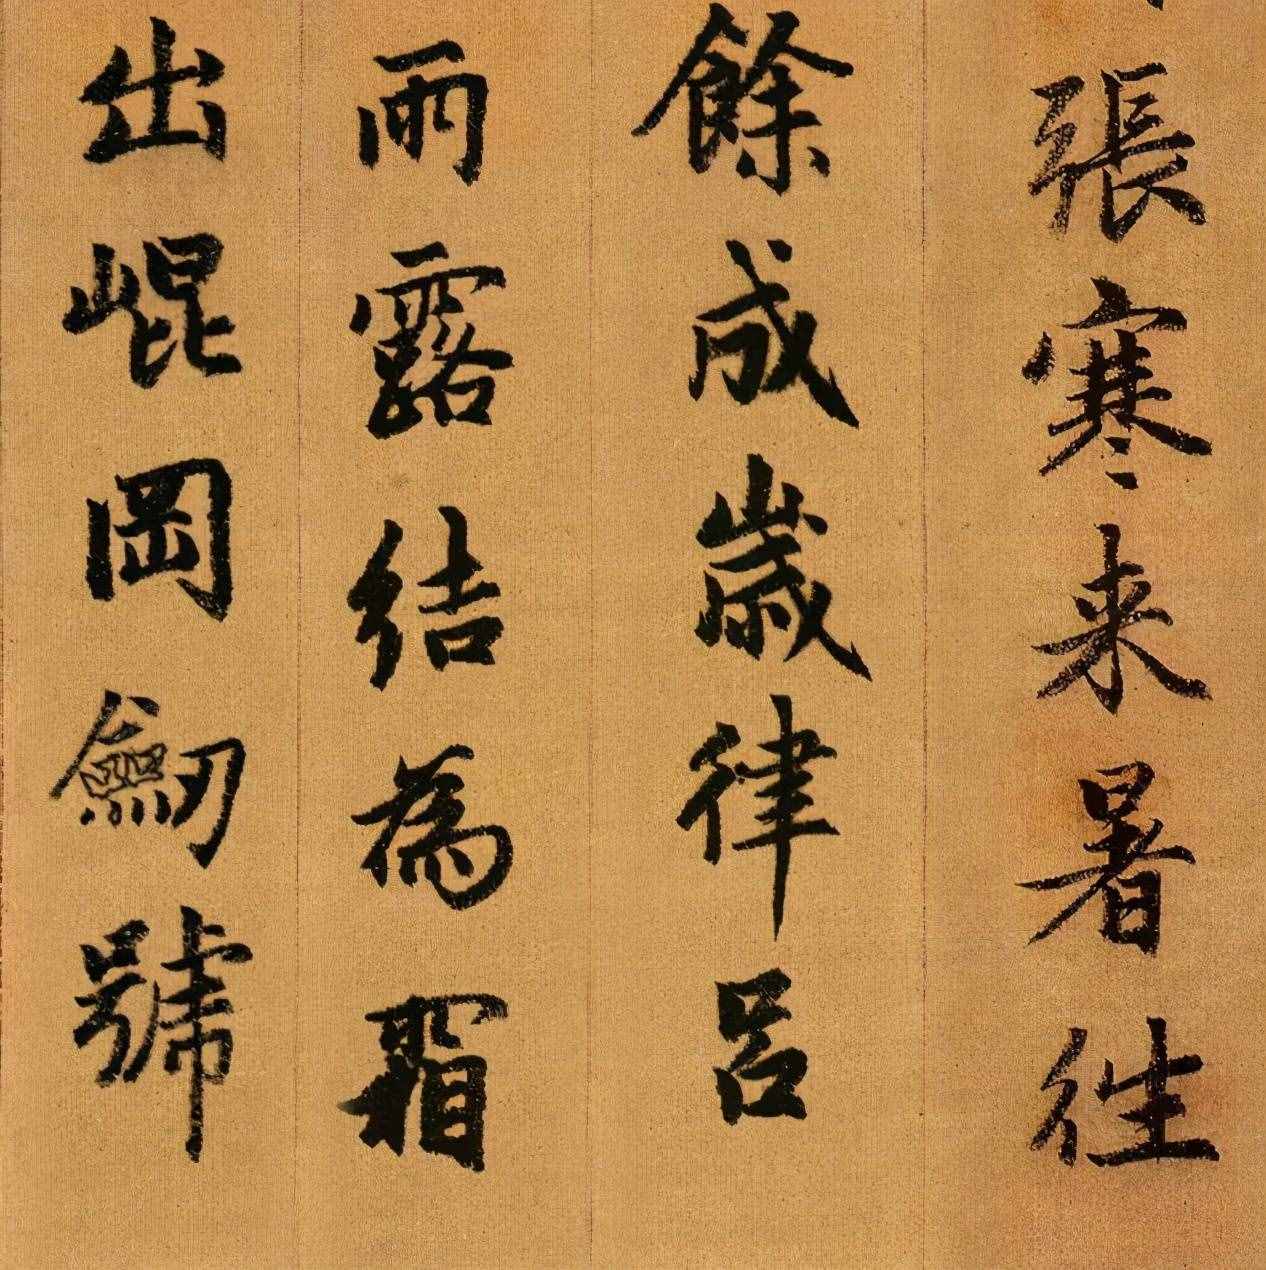 張寒来暑徃
餘成歲律呂
雨露結為霜
出崐岡劒號